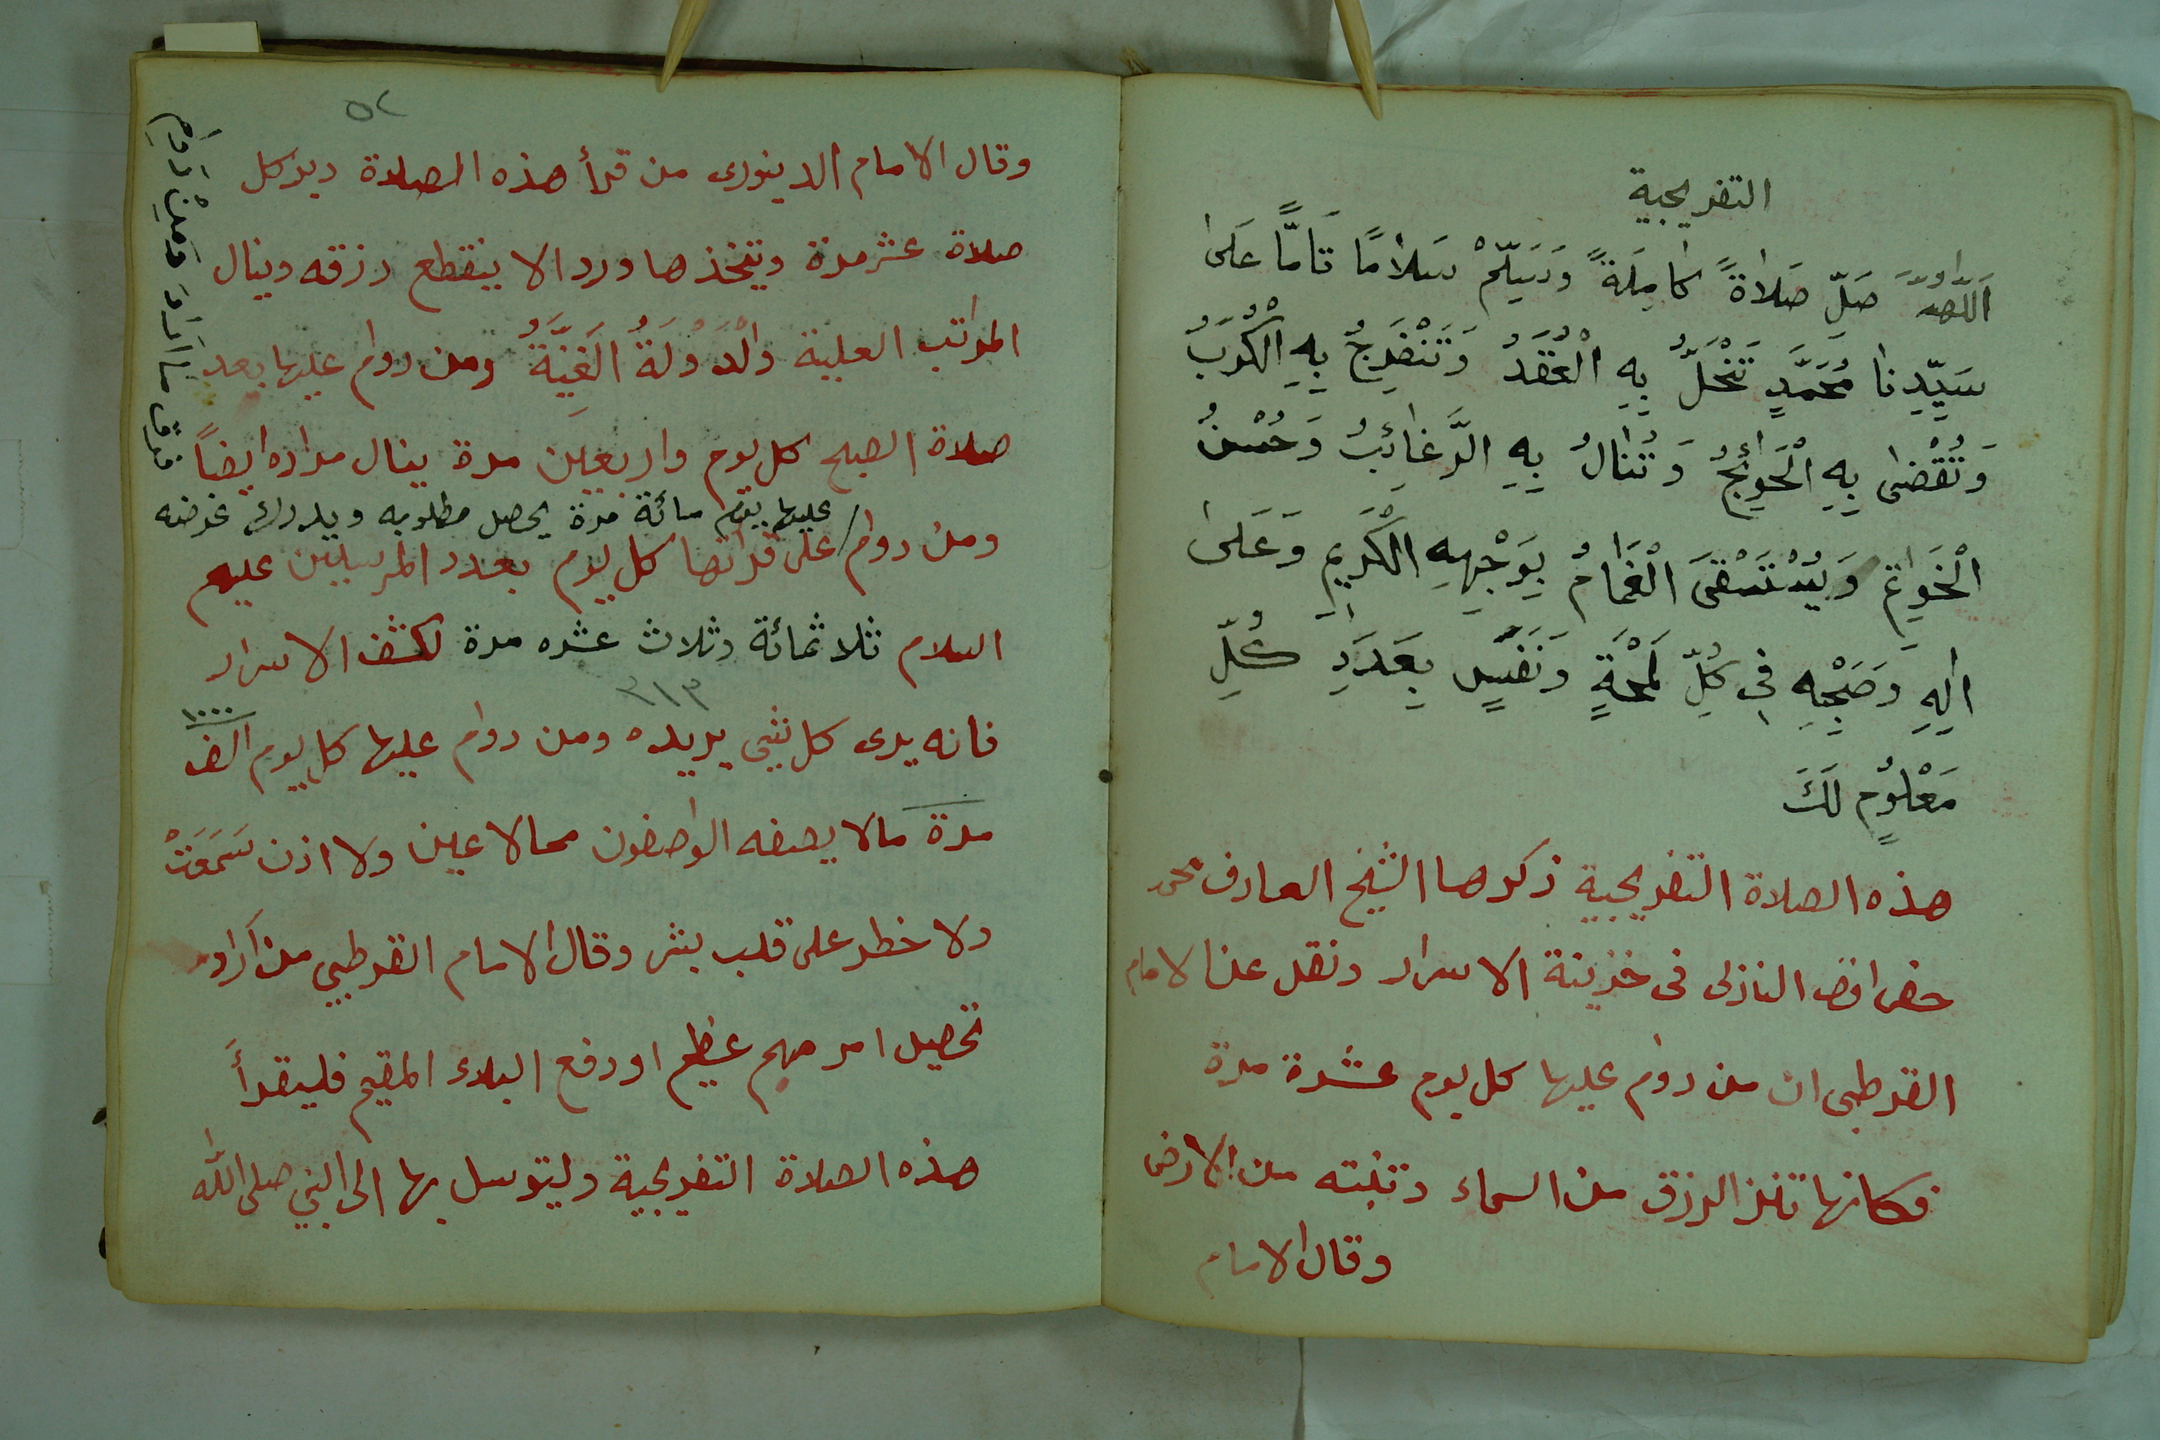 التفريجية
اَللّٰهُمَّ صَلِّ صَلَاةً كَامِلَةً وَسَلِّمْ سَلَامًا تَامًّا عَلَى
سَيِّدِنَا مُحَمَّدٍ تَنْحَلُّ بِهِ الْعُقَدُ وَتَنْفَرِجُ بِهِ الْكُرَبُ
وَتُقْضٰى بِهِ الْحَوَائِجُ وَتُنَالُ بِهِ الرَّغَائِبُ وَحُسْنُ
الْخَوَاتِمِ وَيُسْتَسْقَى الْغَمَامُ بِوَجْهِهِ الْكَرِيمِ وَعَلَى
اٰلِهِ وَصَحْبِهِ فِى كُلِّ لَمْحَةٍ وَنَفَسٍ بِعَدَدِ كُلِّ
مَعْلُومٍ لَكَ
هذه الصلاة التفريجية ذكرها الشيخ العارف محمد
حقى افندى النازلى فى خزينة الاسرار ونقل عن الامام
القرطبى ان من دوام عليها كل يوم عشرة مرة
فكانها تنلز الرزق من السماء وتنبته من الارض
وقال الامام
٥٢
وقال الامام الدينورى من قرأ هذه الصلاة دبر كل
صلاة عشر مرة ويتخذها وردا لا ينقطع رزقه وينال
المراتب العلية والْدَوْلَةُ الْغَنِيَّةُ ومن دوام عليها بعد
صلاة الصبح كل يوم واربعين مرة ينال مراده ايضاً
عليها يوم مائة مرة يحصل مطلوبه ويدرك غرضه
ومن دوام / على قرائتها كل يوم بعدد المرسلين عليهم
السلام ثلاثمائة وثلاث عشره مرة لكشف الاسرار
٣١٣
فانه يرى كل شئ يريده ومن دوام عليها كل يوم الف
١٠٠٠
مرة مالا يصفه الواصفون ممالا عين ولا اذن سَمَعَتْ
ولا خطر على قلب بشر وقال الامام القرطبى من اراد
تحصيل امر مهم عظيم او دفع البلاء المقيم فليقرأَ
هذه الصلاة التفريجية وليتوسل بها الى النبى صلى الله